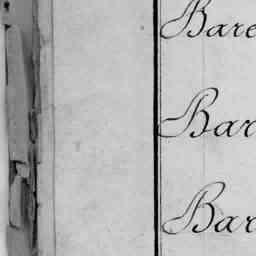 Bare
Bar
Bar